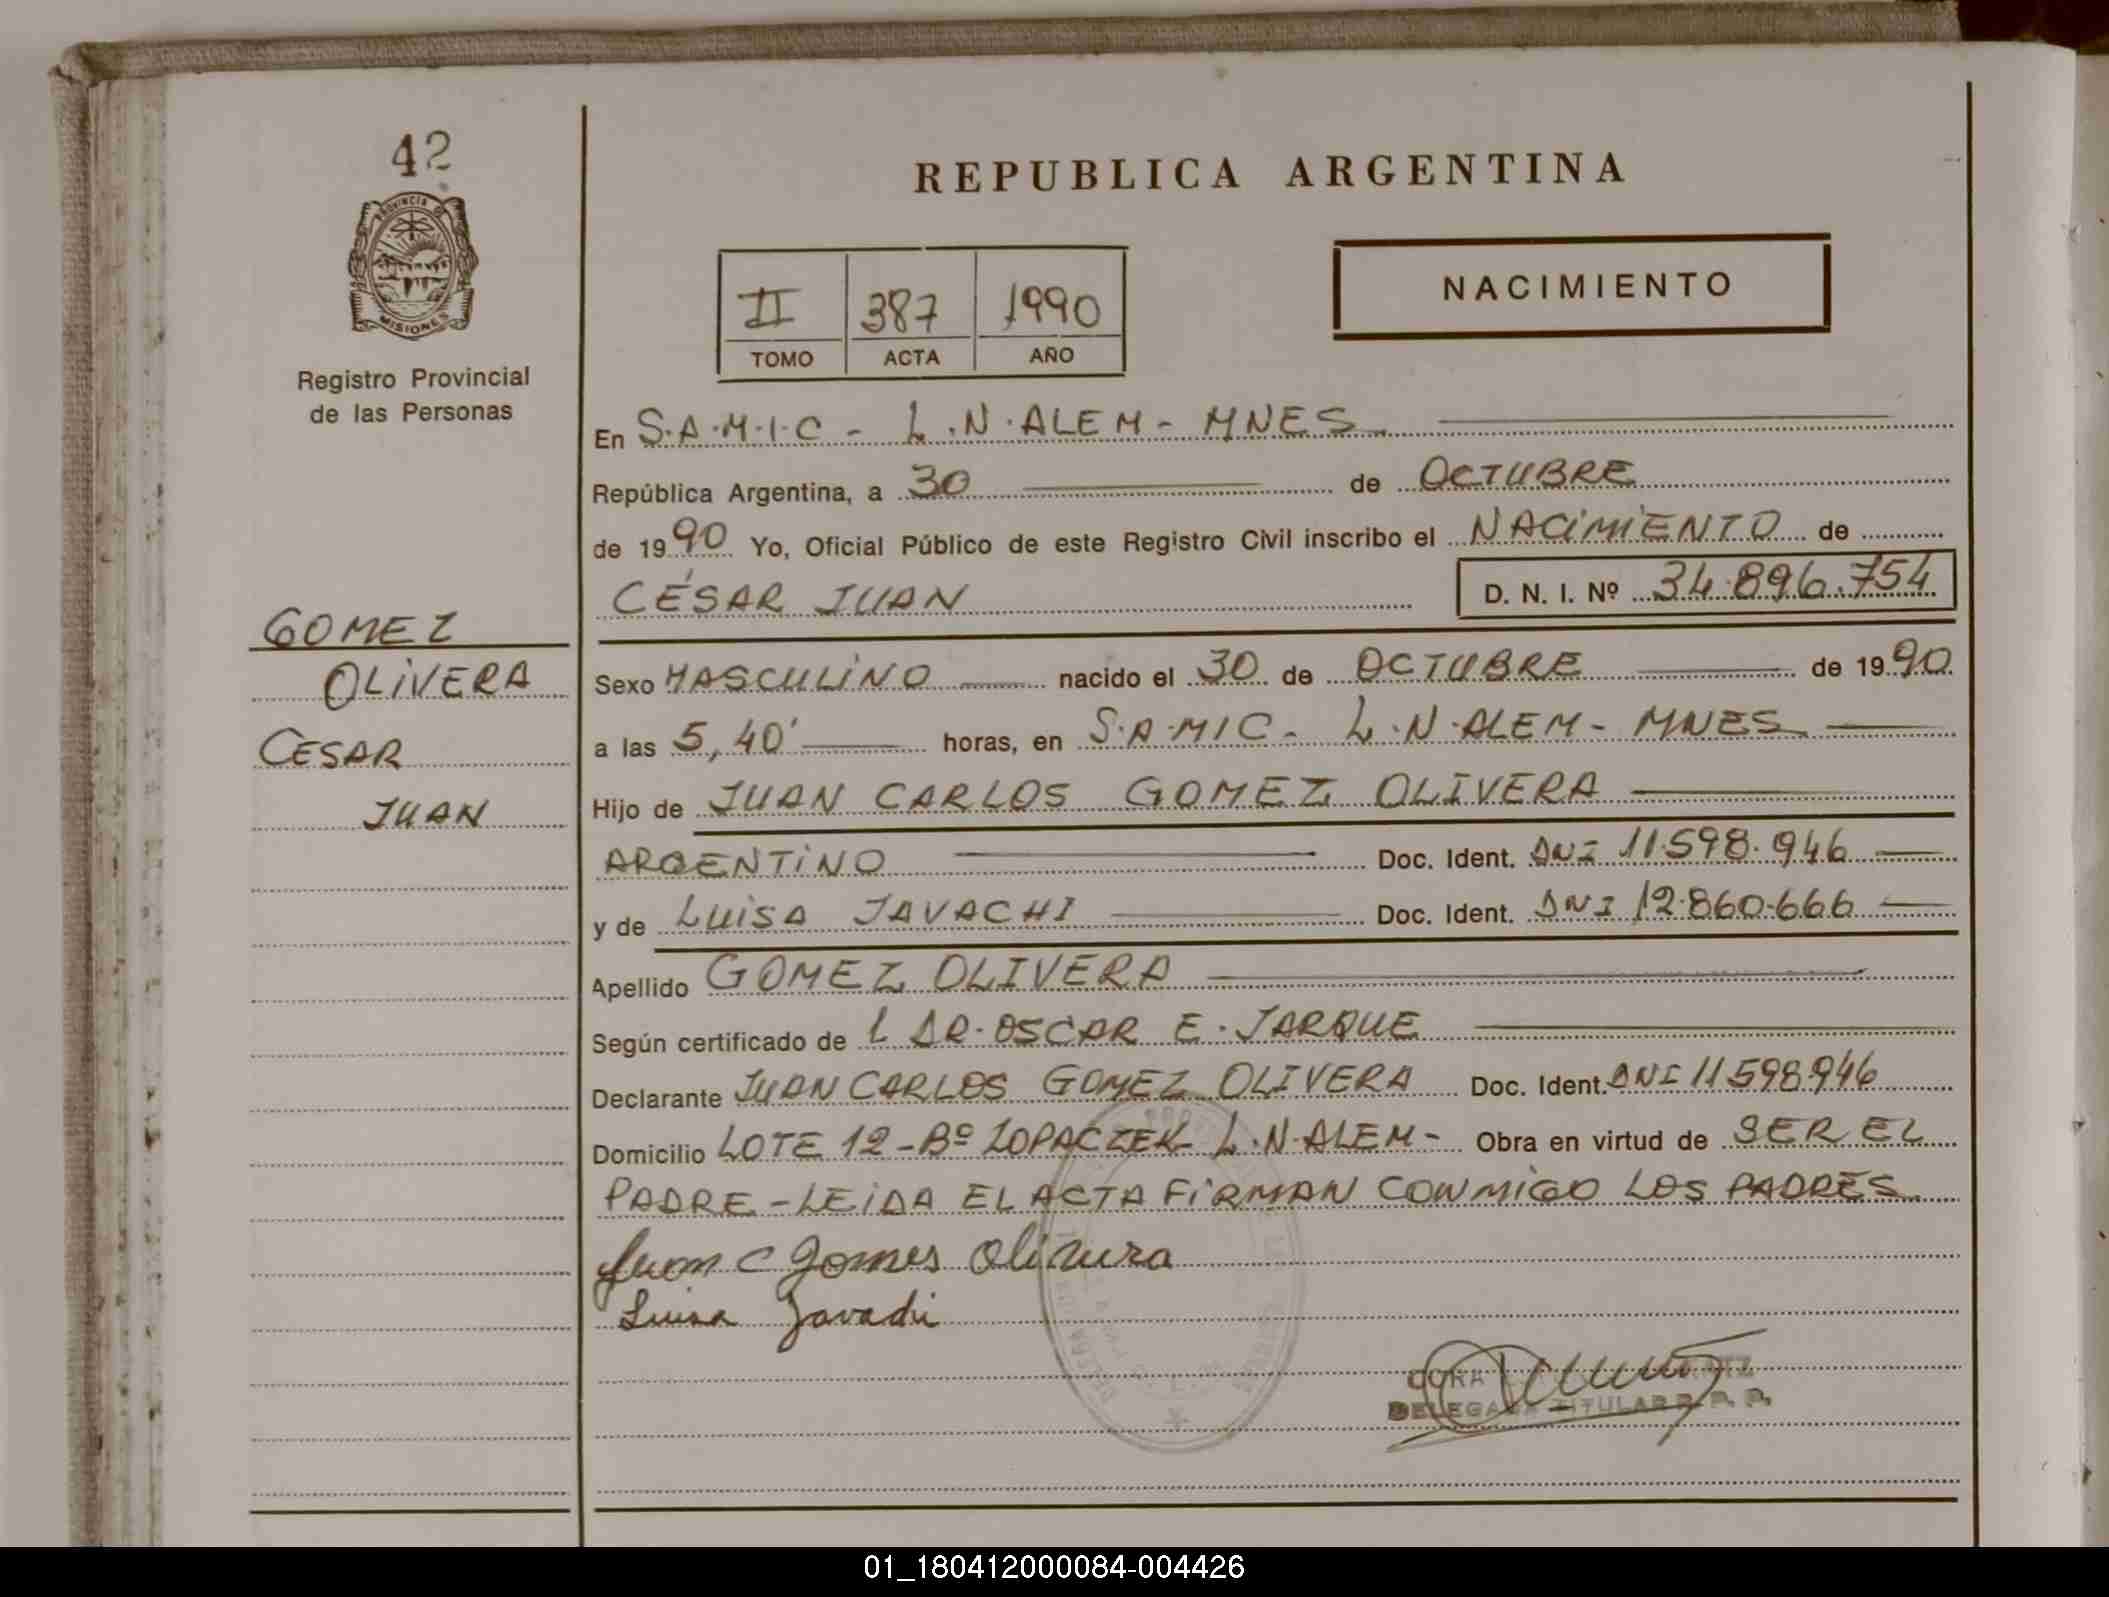 42
PROVINCIA DE
MISIONES
Registro Provincial
de las Personas
GOMEZ
OLIVERA
CESAR
JUAN
REPUBLICA ARGENTINA
II 387 1990
TOMO ACTA AÑO
NACIMIENTO
En S.A.M.I.C - L.N.ALEM - MNES
República Argentina, a 30 de OCTUBRE
de 1990 Yo, Oficial Público de este Registro Civil inscribo el NACIMIENTO de
CÉSAR JUAN D. N. I. Nº 34.896.754
Sexo MASCULINO nacido el 30 de OCTUBRE de 1990
a las 5,40' horas, en S.A.MIC - L.N.ALEM - MNES
Hijo de JUAN CARLOS GOMEZ OLIVERA
ARGENTINO Doc. Ident. DNI 11.598.946
y de LUISA JAVACHI Doc. Ident. DNI 12.860.666
Apellido GOMEZ OLIVERA
Según certificado de L DR. OSCAR E. JARQUE
Declarante JUAN CARLOS GOMEZ OLIVERA Doc. Ident. DNI 11598946
Domicilio LOTE 12 - Bº ZOPACZEK L.N.ALEM - Obra en virtud de SER EL
PADRE - LEIDA EL ACTA FIRMAN CONMIGO LOS PADRES
Juan C Gomes Olivera
Luisa Javachi
DELEGADA TITULAR R. P. P.
01_180412000084-004426